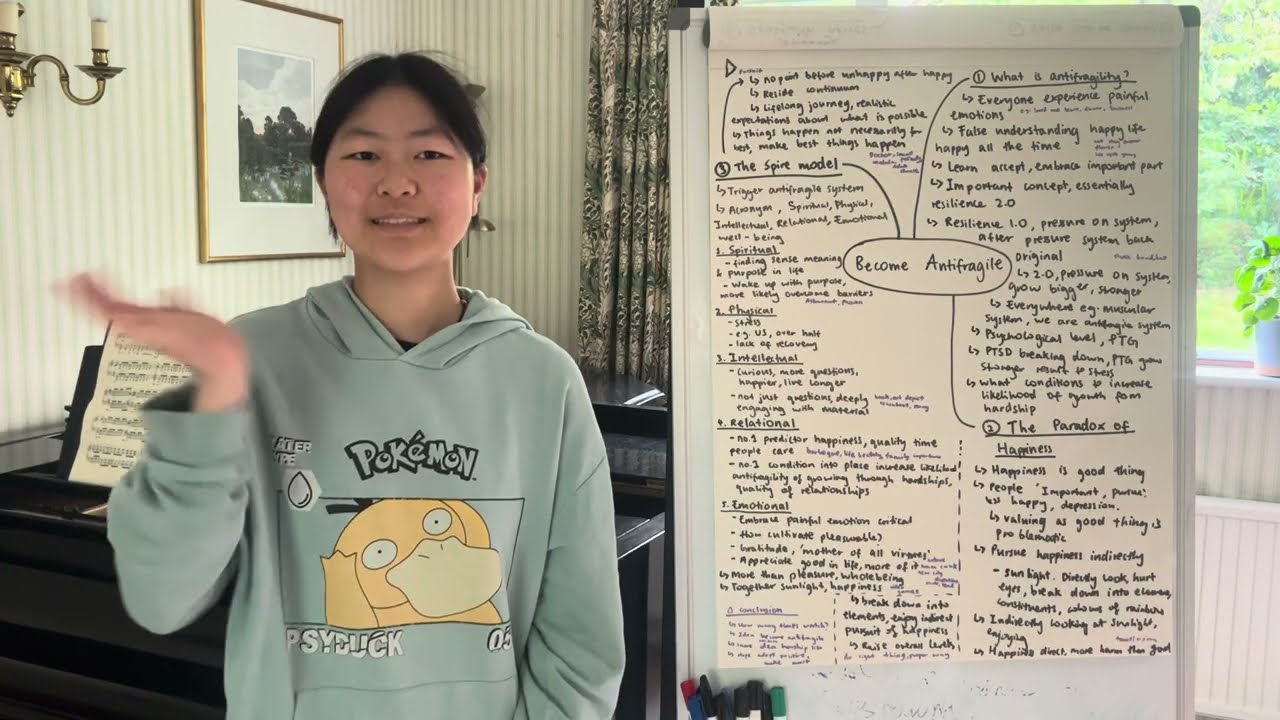 POKéMON
PSYDUCK
05
Become Antifragile
① What is antifragility?
↳ Everyone experience painful
emotions
↳ False understanding happy life
happy all the time
↳ Learn accept, embrace important part
↳ Important concept, essentially
resilience 2.0
↳ Resilience 1.0, pressure on system,
after pressure system back
original
↳ 2.0, pressure on system,
grow bigger, stronger
↳ Everywhere e.g. muscular
system, we are antifragile system
↳ Psychological level, PTG
↳ PTSD breaking down, PTG grow
stronger result to stress
↳ what conditions to increase
likelihood of growth from
hardship
② The Paradox of
Happiness
↳ Happiness is good thing
↳ People 'Important, pursue'
less happy, depression.
↳ valuing as good thing is
problematic
↳ Pursue happiness indirectly
- Sunlight. Directly look, hurt
eyes, break down into elements,
constituents, colours of rainbow
↳ Indirectly looking at sunlight,
enjoying
↳ Happiness direct, more harm than good
③ The Spire model
↳ Trigger antifragile system
↳ Acronym, Spiritual, Physical,
Intellectual, Relational, Emotional
well-being
1. Spiritual
- finding sense meaning
& purpose in life
- Wake up with purpose,
more likely overcome barriers
2. Physical
- stress
- e.g. US, over half
- lack of recovery
3. Intellectual
- curious, more questions,
happier, live longer
- not just questions, deeply
engaging with material
4. Relational
- no.1 predictor happiness, quality time
people care
- no.1 condition into place increase likelihood
antifragility of growing through hardships,
quality of relationships
5. Emotional
- Embrace painful emotion critical
- How cultivate pleasurable?
- Gratitude, 'mother of all virtues'
- Appreciate good in life, more of it
↳ More than pleasure, wholebeing
↳ Together sunlight, happiness
↳ break down into
elements, enjoy indirect
pursuit of happiness
↳ Raise overall levels
do right thing, proper way
▷ Pursuit
↳ no point before unhappy after happy
↳ Reside continuum
↳ Lifelong journey, realistic
expectations about what is possible
↳ Things happen not necessarily for
best, make best things happen
conclusion
↳ Idea become antifragile